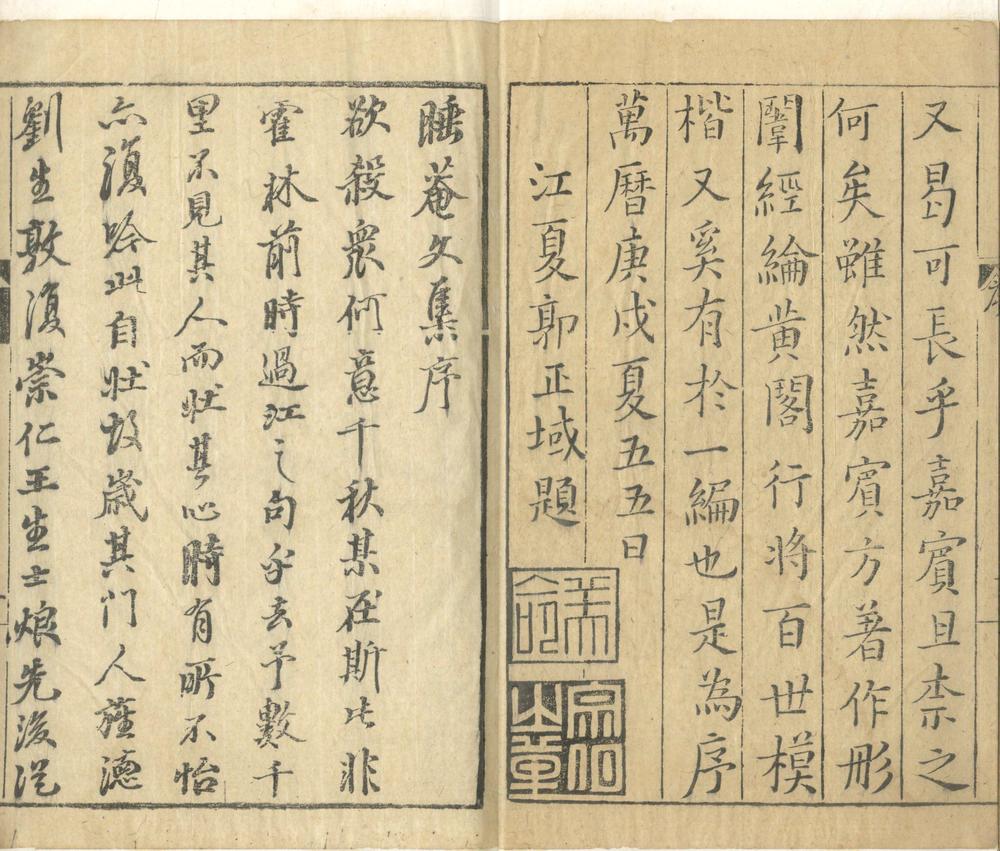 又曷可長乎嘉賓且柰之
何矣雖然嘉賓方著作彤
闈經綸黃閣行將百世模
楷又奚有於一編也是為序
萬曆庚戌夏五五日
江夏郭正域題
睡菴文集序
欲殺衆何意千秋某在斯此非
霍林前時過江之句乎去予數千
里不見其人而壯其心時有所不怡
亦復吟此自壯故歲其門人旌德
劉生敦復崇仁王生士烺先後從